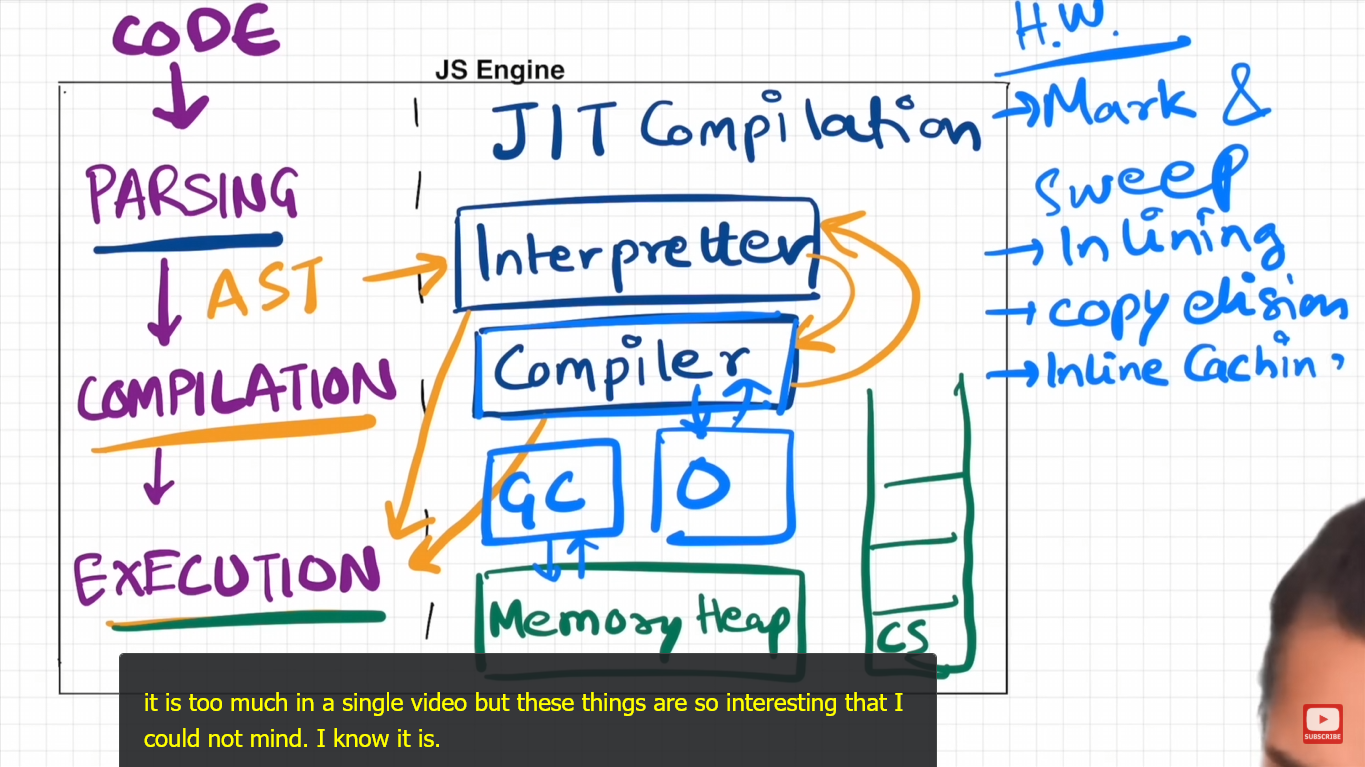 CODE
PARSING
AST
COMPILATION
EXECUTION
JS Engine
JIT Compilation
Interpretter
Compiler
GC
O
Memory Heap
CS
H.W.
Mark &
Sweep
Inlining
Copy elision
Inline Cachin
it is too much in a single video but these things are so interesting that I
could not mind. I know it is.
SUBSCRIBE